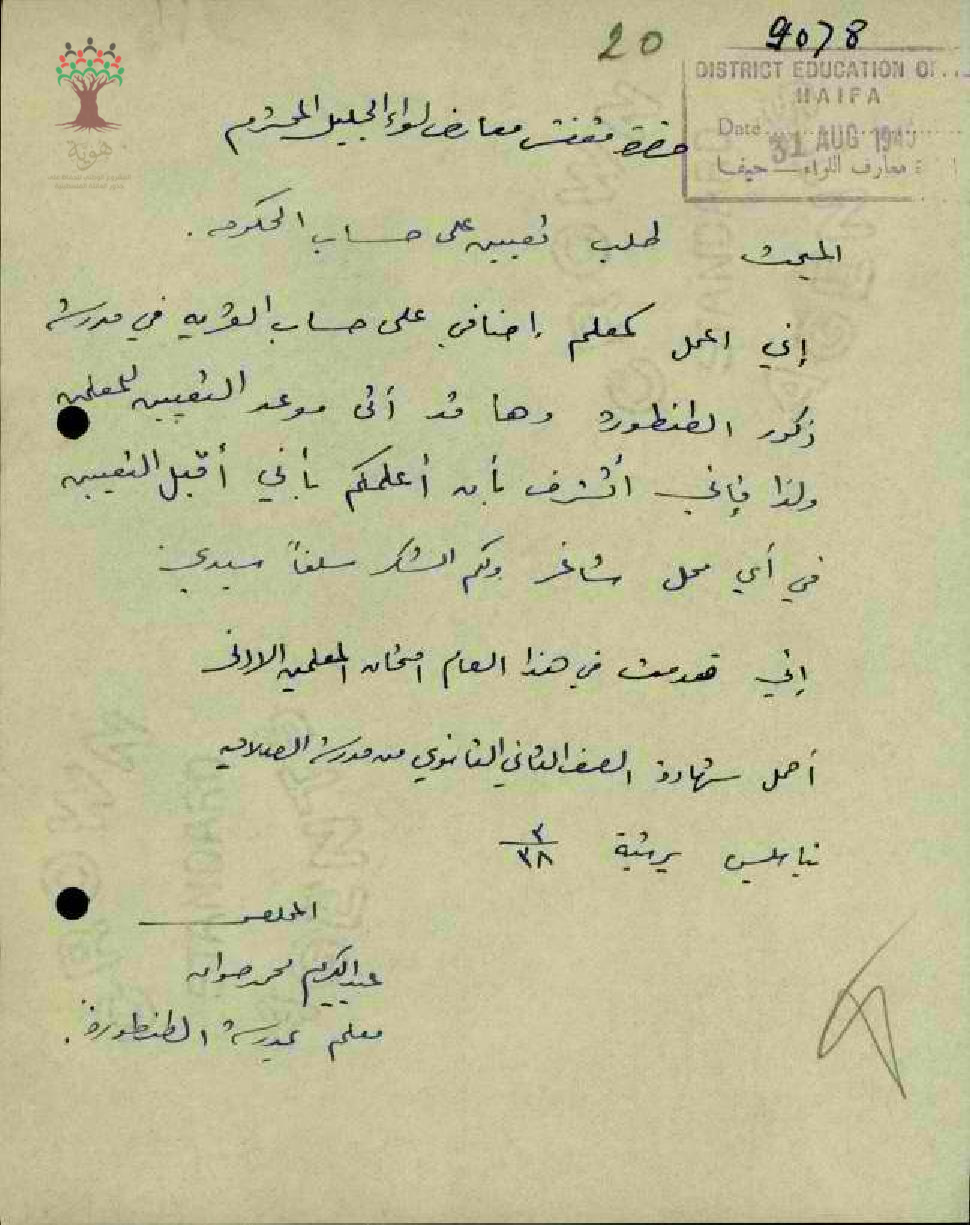 20
9078
DISTRICT EDUCATION OF
HAIFA
Date 31 AUG 194
معارف اللواء - حيفا
هوية
حضرة مفتش معارف لواء الجليل المحترم
المبحث طلب تعيين على حساب الحكومه .
إني اعمل كمعلم إضافي على حساب القريه في مدرسة
ذكور الطنطورة وها قد أتى موعد التعيين للمعلمين
ولذا فإني أتشرف بأن أعلمكم بأني أقبل التعيين
في أي محل شاغر ولكم الشكر سلفاً سيدي :
إني قدمت في هذا العام امتحان المعلمين الادنى
أحمل شهادة الصف الثاني الثانوي من مدرسة الصلاحيه
نابلس بمرتبة ٣/٣٨
المخلص
عبد الكريم محمد صوان
معلم بمدرسة الطنطورة .